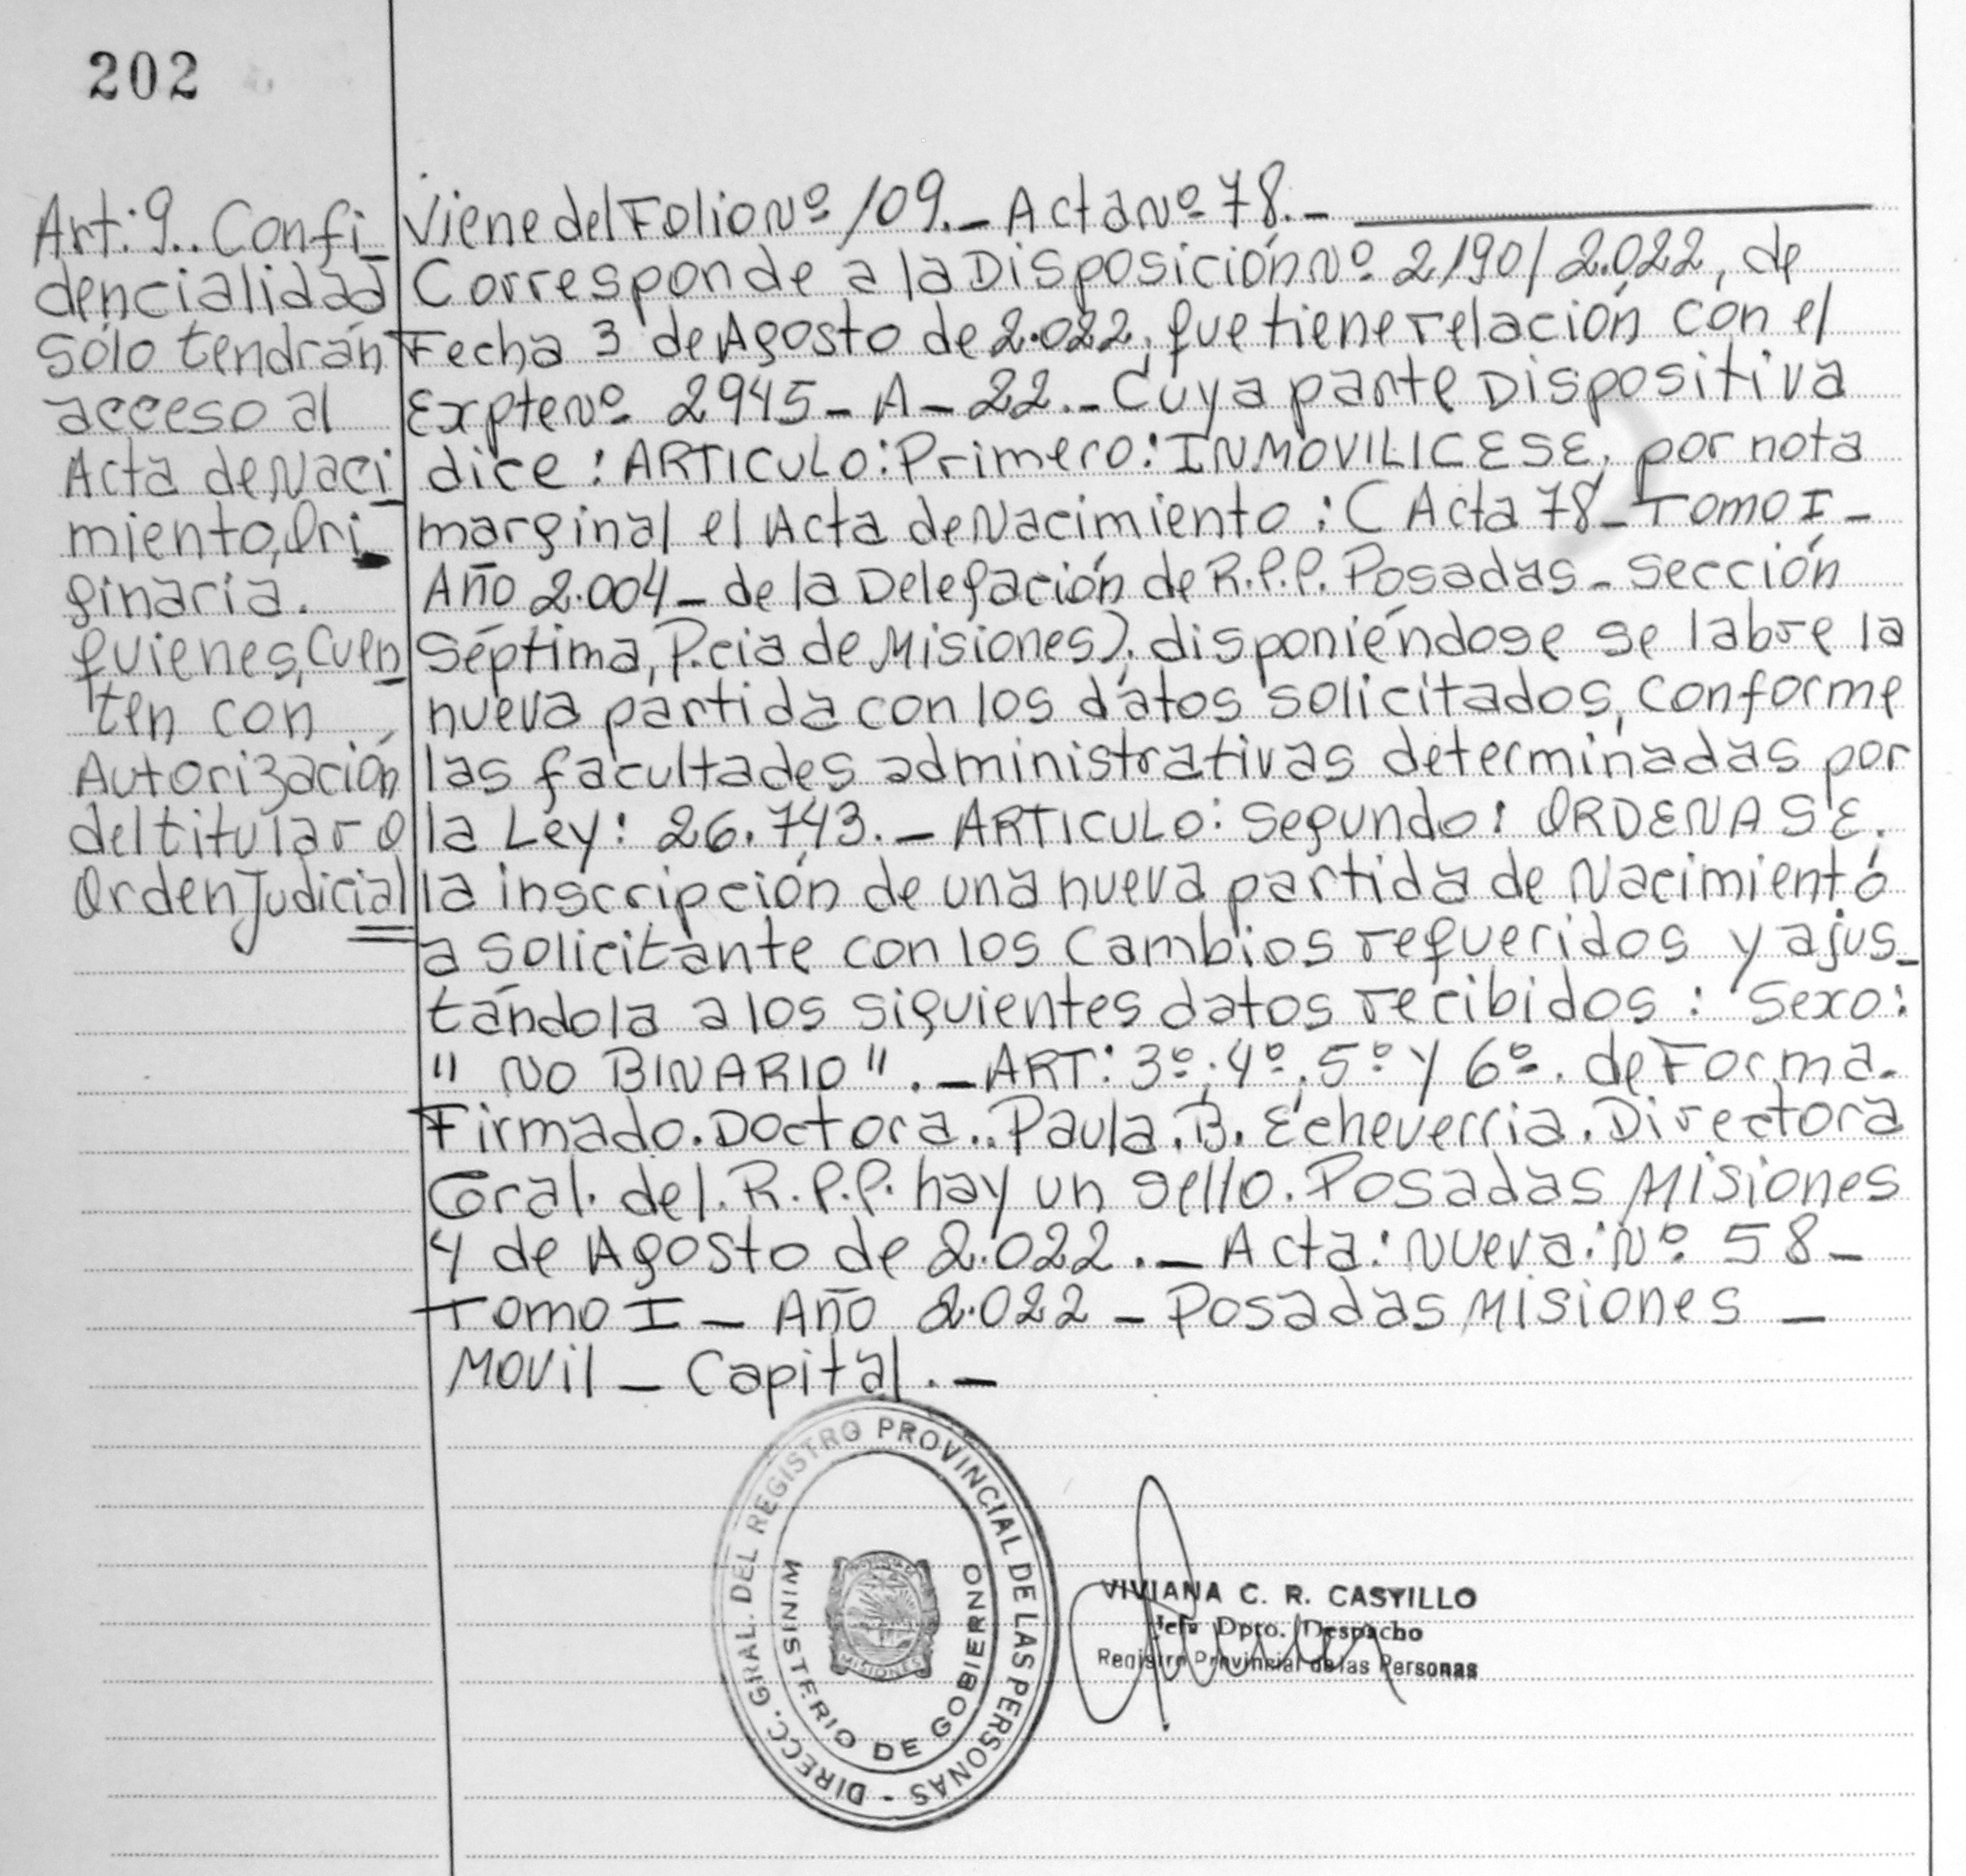 202
Art: 9.. Confi_
dencialidad
Sólo tendrán
acceso al
Acta de Naci_
miento, Ori_
ginaria.
quienes, Cuen_
ten con
Autorización
del titular o
Orden Judicial
Viene del Folio Nº 109._ Acta Nº 78._
Corresponde a la Disposición Nº 2190/2.022, de
Fecha 3 de Agosto de 2.022, que tiene relación con el
Expte Nº 2945_ A_ 22._ Cuya parte Dispositiva
dice: ARTICULO: Primero: INMOVILICESE, por nota
marginal el Acta de Nacimiento: ( Acta 78_ Tomo I_
Año 2.004_ de la Delegación de R.P.P. Posadas_ Sección
Séptima, P.cia de Misiones). disponiéndose se labre la
nueva partida con los datos solicitados, conforme
las facultades administrativas determinadas por
la Ley: 26.743._ ARTICULO: Segundo: ORDENASE.
la inscripción de una nueva partida de Nacimiento
a solicitante con los cambios requeridos y ajus_
tándola a los siguientes datos recibidos: Sexo:
" NO BINARIO "._ ART: 3º, 4º, 5º y 6º. de Forma.
Firmado. Doctora.. Paula. B. Echeverria. Directora
Gral. del. R.P.P. hay un sello. Posadas Misiones
4 de Agosto de 2.022._ Acta: Nueva: Nº 58_
Tomo I_ Año 2.022_ Posadas Misiones_
Movil_ Capital._
DIRECC. GRAL. DEL REGISTRO PROVINCIAL DE LAS PERSONAS -
MINISTERIO DE GOBIERNO
MISIONES
VIVIANA C. R. CASTILLO
Jefe Dpto. Despacho
Registro Provincial de las Personas